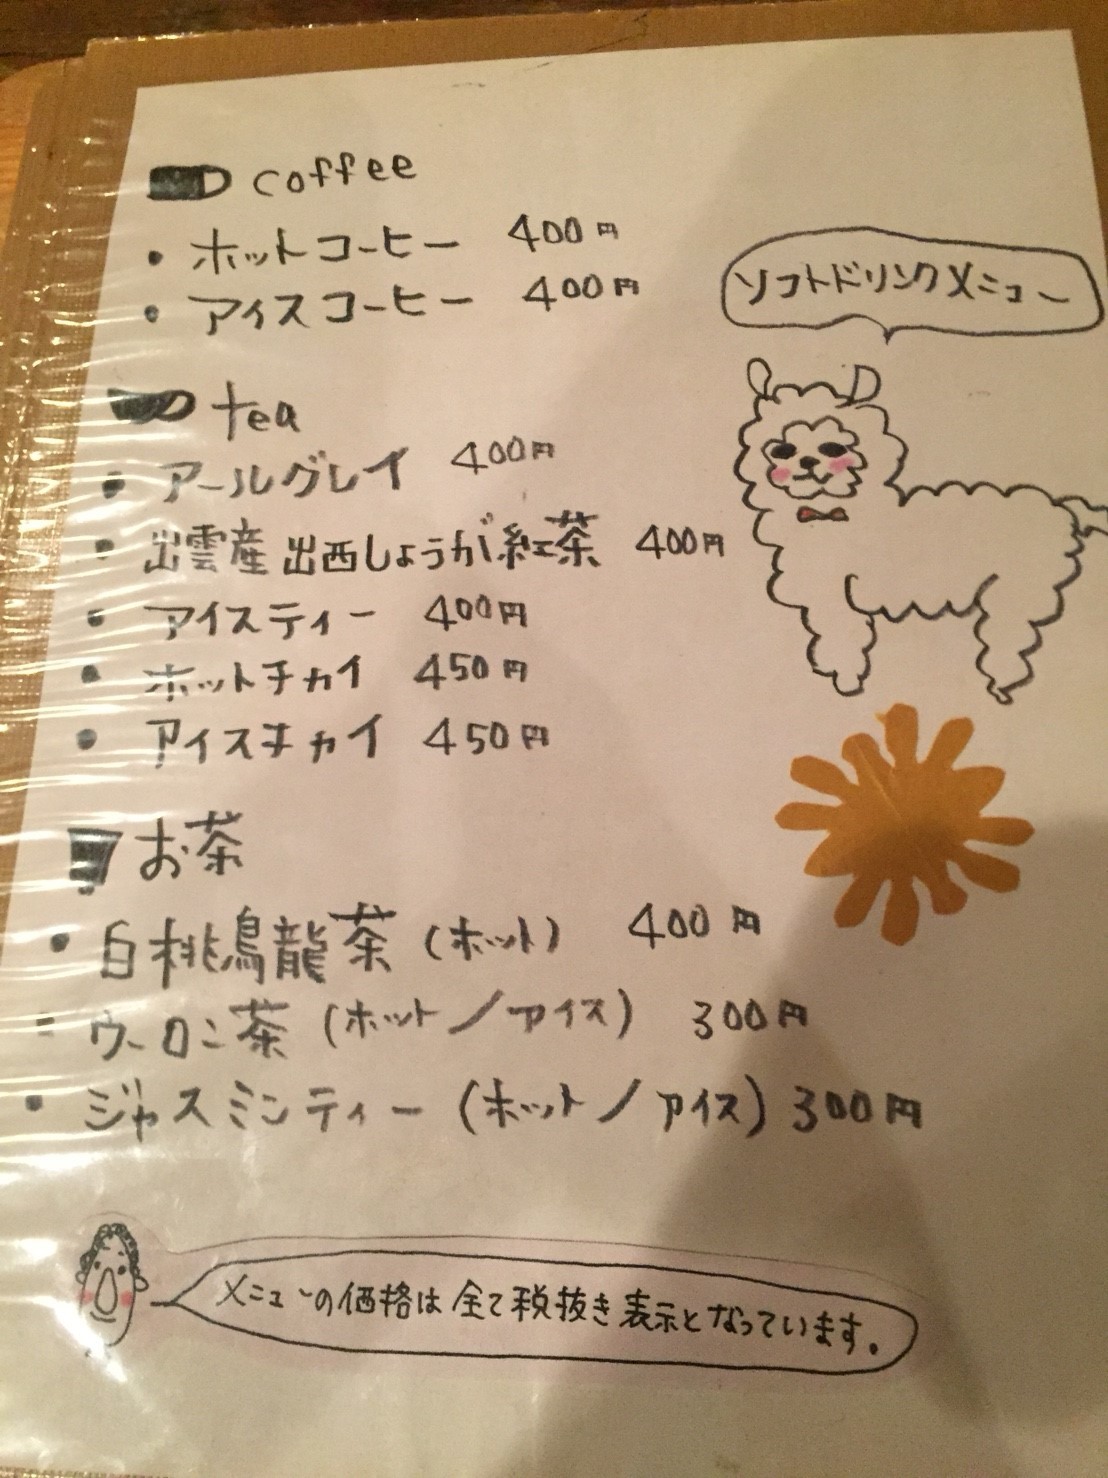 coffee
・ホットコーヒー 400円
・アイスコーヒー 400円
ソフトドリンクメニュー
tea
・アールグレイ 400円
・出雲産出西しょうが紅茶 400円
・アイスティー 400円
・ホットチャイ 450円
・アイスチャイ 450円
お茶
・白桃烏龍茶(ホット) 400円
・ウーロン茶(ホット/アイス) 300円
・ジャスミンティー(ホット/アイス) 300円
メニューの価格は全て税抜き表示となっています。